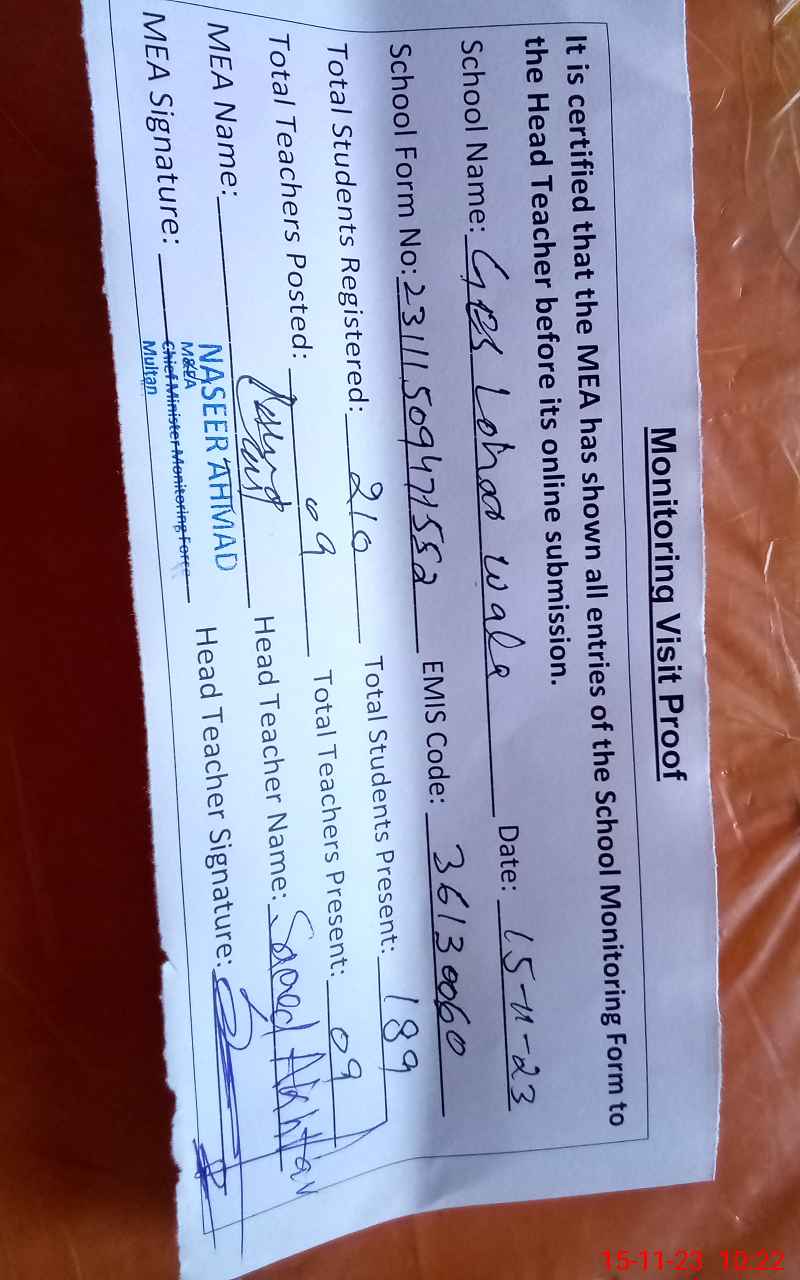 Monitoring Visit Proof
It is certified that the MEA has shown all entries of the School Monitoring Form to
the Head Teacher before its online submission.
School Name: GES Lohar wala Date: 15-11-23
School Form No: 23111509471552 EMIS Code: 36130060
Total Students Registered: 210 Total Students Present: 189
Total Teachers Posted: 09 Total Teachers Present: 09
MEA Name: Head Teacher Name: Saeed Akhtar
MEA Signature: Head Teacher Signature:
NASEER AHMAD
M&EA
Chief Minister Monitoring Force
Multan
15-11-23 10:22